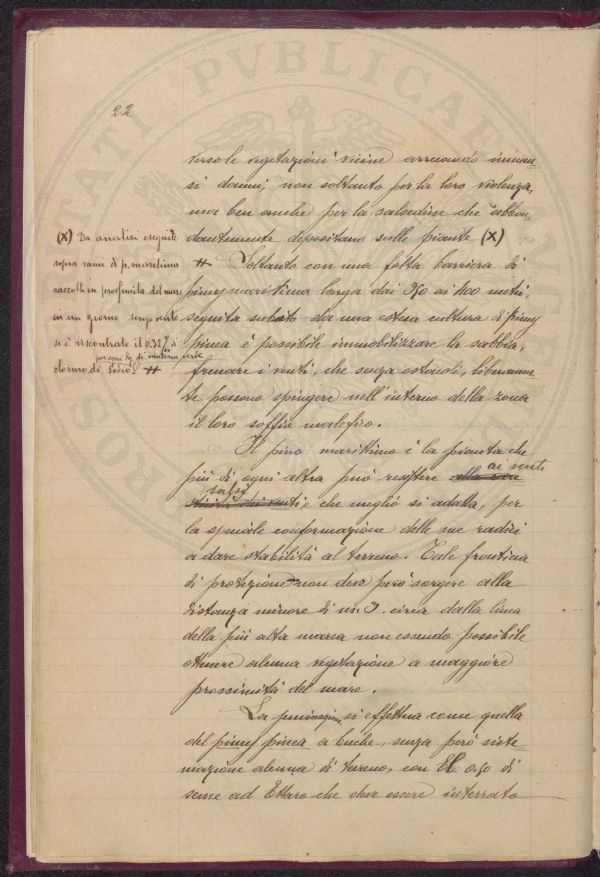 22
verso le vegetazioni vicine arrecando immen-
si danni, non soltanto per la loro violenza,
ma ben anche per la salsedine che abbon-
dantemente depositano sulle piante (X)
# Soltanto con una folta barriera di
pinus maritima larga dai 350 ai 400 metri,
seguita subito da una estesa cultura di pinus
pinea è possibile immobilizzare la sabbia,
frenare i venti, che senza ostacoli, liberamen-
te possono spingere nell'interno della zona
il loro soffio malefico.
Il pino marittimo è la pianta che
più di ogni altra può resistere ai venti
salsi e che meglio si adatta, per
la speciale conformazione delle sue radici
a dare stabilità al terreno. Tale frontina
di protezione non deve però sorgere alla
distanza minore di m. 3. circa dalla linea
della più alta marea non essendo possibile
ottenere alcuna vegetazione a maggiore
prossimità del mare.
La seminagione si effettua come quella
del pinus pinea a buche, senza però siste-
mazione alcuna di terreno, con El 0,50 di
seme ad Ettaro che deve essere interrato
(X) Da analisi eseguite
sopra rami di p. maritima
raccolti in prossimità del mare
in un giorno senza vento
si è riscontrato il 0.32% di
per ogni kg. di materia verde
cloruro di sodio #
PUBLICAE